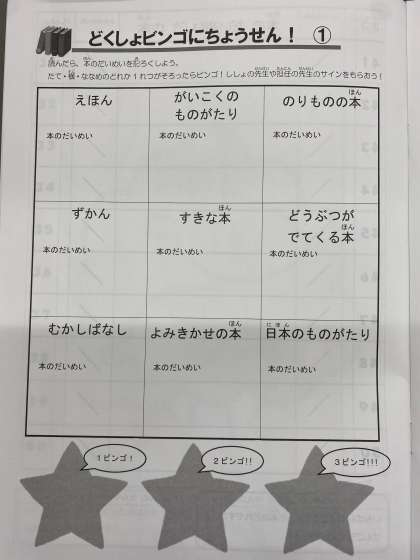 どくしょビンゴにちょうせん！ ①
読んだら、本のだいめいを記ろくしよう。
たて・横・ななめのどれか１れつがそろったらビンゴ！ししょの先生や担任の先生のサインをもらおう！
えほん
本のだいめい
がいこくの
ものがたり
本のだいめい
のりものの本
本のだいめい
ずかん
本のだいめい
すきな本
本のだいめい
どうぶつが
でてくる本
本のだいめい
むかしばなし
本のだいめい
よみきかせの本
本のだいめい
日本のものがたり
本のだいめい
１ビンゴ！
２ビンゴ!!
３ビンゴ!!!